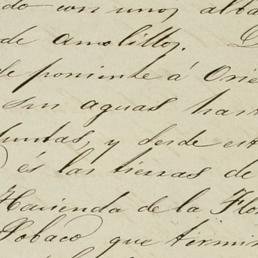 do con unos alba
de amolillos. D
de poniente á Orie
sus aguas hast
juntas, y desde est
és las tierras de
Hacienda de la Flor
Tobaco que termin